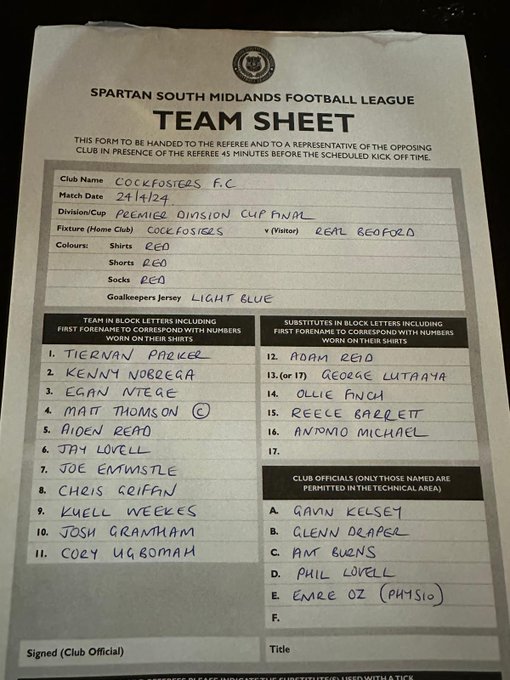 SPARTAN SOUTH MIDLANDS FOOTBALL LEAGUE
TEAM SHEET
THIS FORM TO BE HANDED TO THE REFEREE AND TO A REPRESENTATIVE OF THE OPPOSING
CLUB IN PRESENCE OF THE REFEREE 45 MINUTES BEFORE THE SCHEDULED KICK OFF TIME.
Club Name COCKFOSTERS F.C
Match Date 24/4/24
Division/Cup PREMIER DIVISION CUP FINAL
Fixture (Home Club) COCKFOSTERS v (Visitor) REAL BEDFORD
Colours: Shirts RED
Shorts RED
Socks RED
Goalkeepers Jersey LIGHT BLUE
TEAM IN BLOCK LETTERS INCLUDING
FIRST FORENAME TO CORRESPOND WITH NUMBERS
WORN ON THEIR SHIRTS
1. TIERNAN PARKER
2. KENNY NOBREGA
3. EGAN NTEGE
4. MATT THOMSON C
5. AIDEN READ
6. JAY LOVELL
7. JOE ENTWISTLE
8. CHRIS GRIFFIN
9. KUELL WEEKES
10. JOSH GRANTHAM
11. CORY UGBOMAH
SUBSTITUTES IN BLOCK LETTERS INCLUDING
FIRST FORENAME TO CORRESPOND WITH NUMBERS
WORN ON THEIR SHIRTS
12. ADAM REID
13. (or 17) GEORGE LUTAAYA
14. OLLIE FINCH
15. REECE BARRETT
16. ANTONIO MICHAEL
17.
CLUB OFFICIALS (ONLY THOSE NAMED ARE
PERMITTED IN THE TECHNICAL AREA)
A. GAVIN KELSEY
B. GLENN DRAPER
C. ANT BURNS
D. PHIL LOVELL
E. EMRE OZ (PHYSIO)
F.
Signed (Club Official)
Title
REFEREES PLEASE INDICATE THE SUBSTITUTE(S) USED WITH A TICK